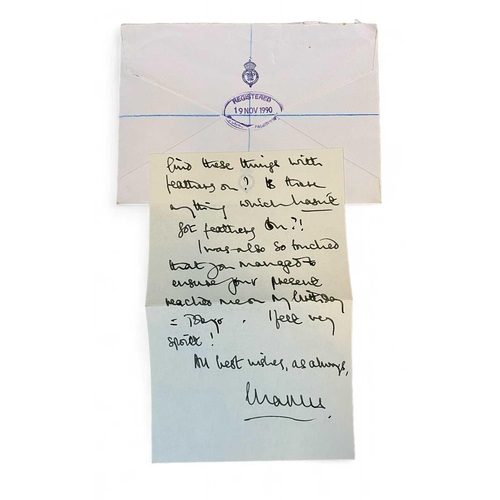 REGISTERED
19 NOV 1990
find these things with
feathers on? Is there
anything which hasn't
got feathers on?!
I was also so touched
that you managed to
ensure your present
reached me on my birthday
= Tokyo. I feel very
spoilt!
All best wishes, as always,
Charles